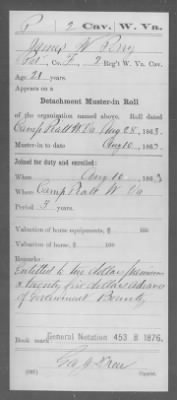 P 2 Cav. W. Va.
James W Perry
Pvt, Co. F, 2 Reg't W. Va. Cav.
Age 21 years.
Appears on a
Detachment Muster-in Roll
of the organization named above. Roll dated
Camp Piatt W Va Aug 28, 1863.
Muster-in to date Aug 10, 1863.
Joined for duty and enrolled:
When Aug 10, 1863
Where Camp Piatt W Va
Period 3 years.
Valuation of horse equipments, $ 100
Valuation of horse, $ 100
Remarks:
Entitled to two dollars premium
& twenty five dollars advance
of Government Bounty
Book mark: General Notation 453 B 1876.
Copyist.